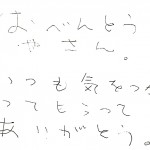 おべんとう
さん。
いつも気をつか
ってもらって
ありがとう。